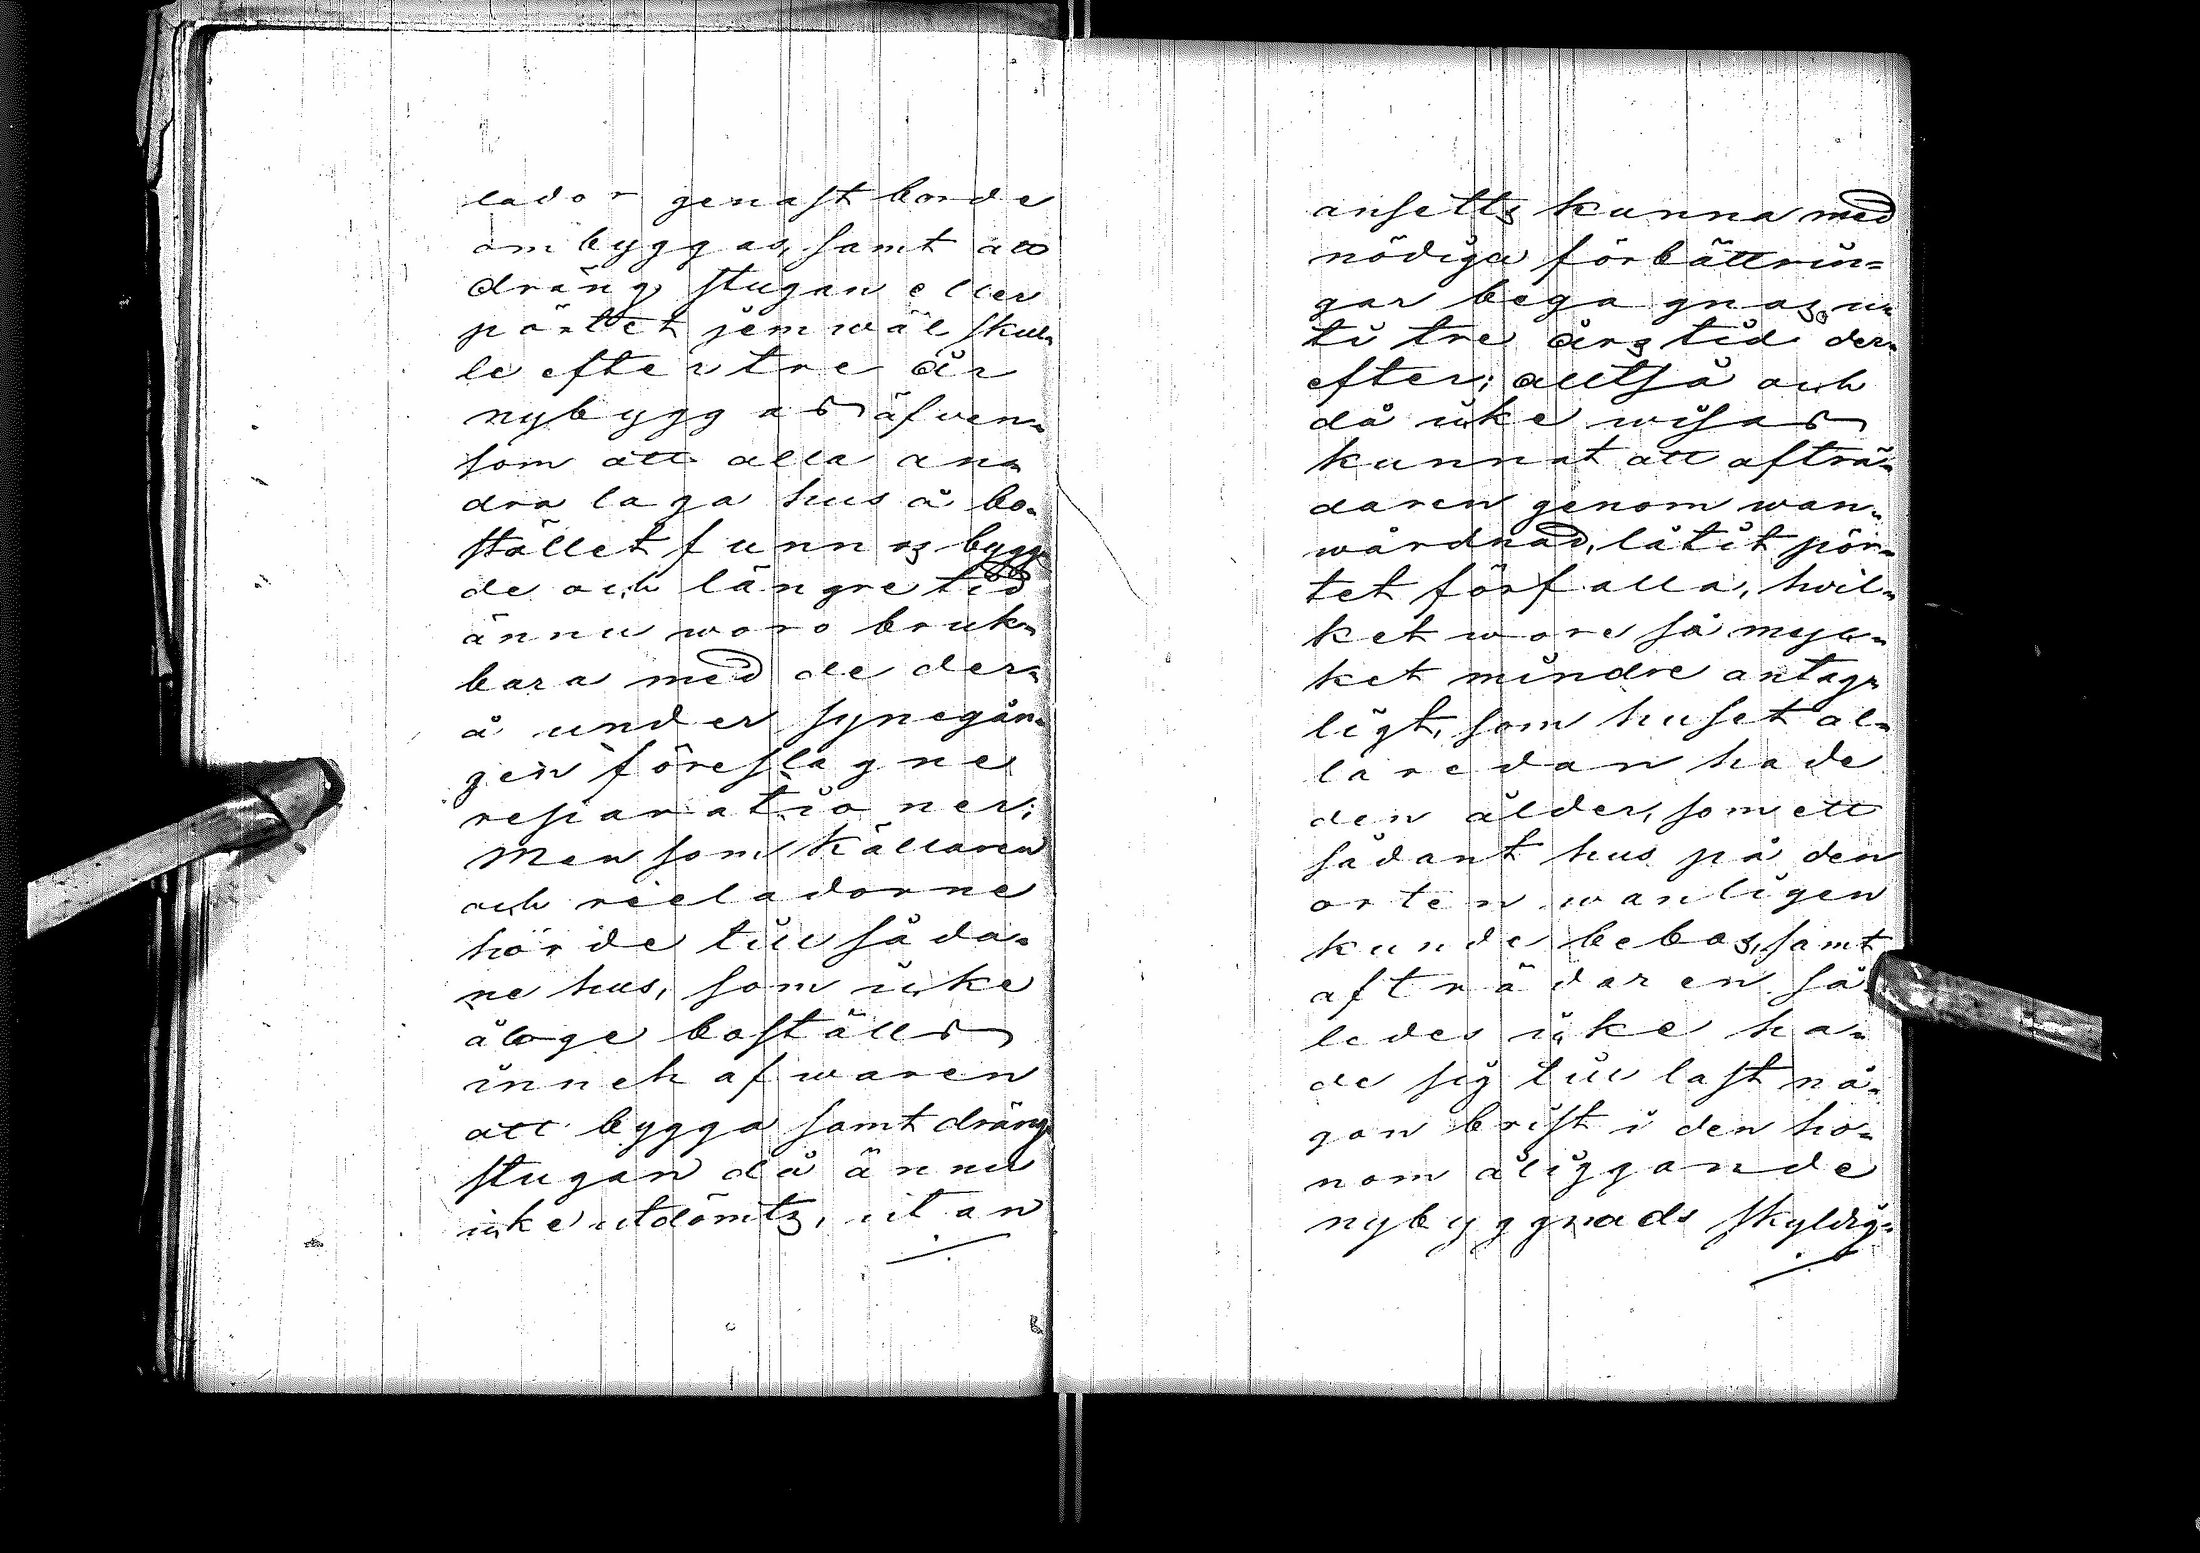 lador genast borde
ombyggas, samt att
dräng stugan eller
pörtet jemwäl skul-
le efter tre år
nybyggas äfven-
som att alla an-
dra laga hus å bo-
stället funnos bygg-
de och längre tid
ännu woro bruk-
bara med de der-
å under synegån-
gen föreslagne
reparationer;
Men som källaren
och rieladorne
hörde till såda-
ne hus, som icke
åloge boställs
innehafwaren
att bygga samt dräng-
stugan då ännu
icke utdömts, utan
ansetts kunna med
nödiga förbättrin-
gar begagnas un-
ti tre års tid der-
efter; alltså och
då icke wisas
kunnat att afträ-
daren genom wan-
wårdnad, låtit pör-
tet förfalla, hwil-
ket wore så myc-
ket mindre antag-
ligt, som huset al-
laredan hade
den ålder, som ett
sådant hus på den
orten wanligen
kunde bebos, samt
afträdaren så-
ledes icke ha-
de sig till last nå-
gon brist i den ho-
nom åliggande
nybyggnads skyldig-